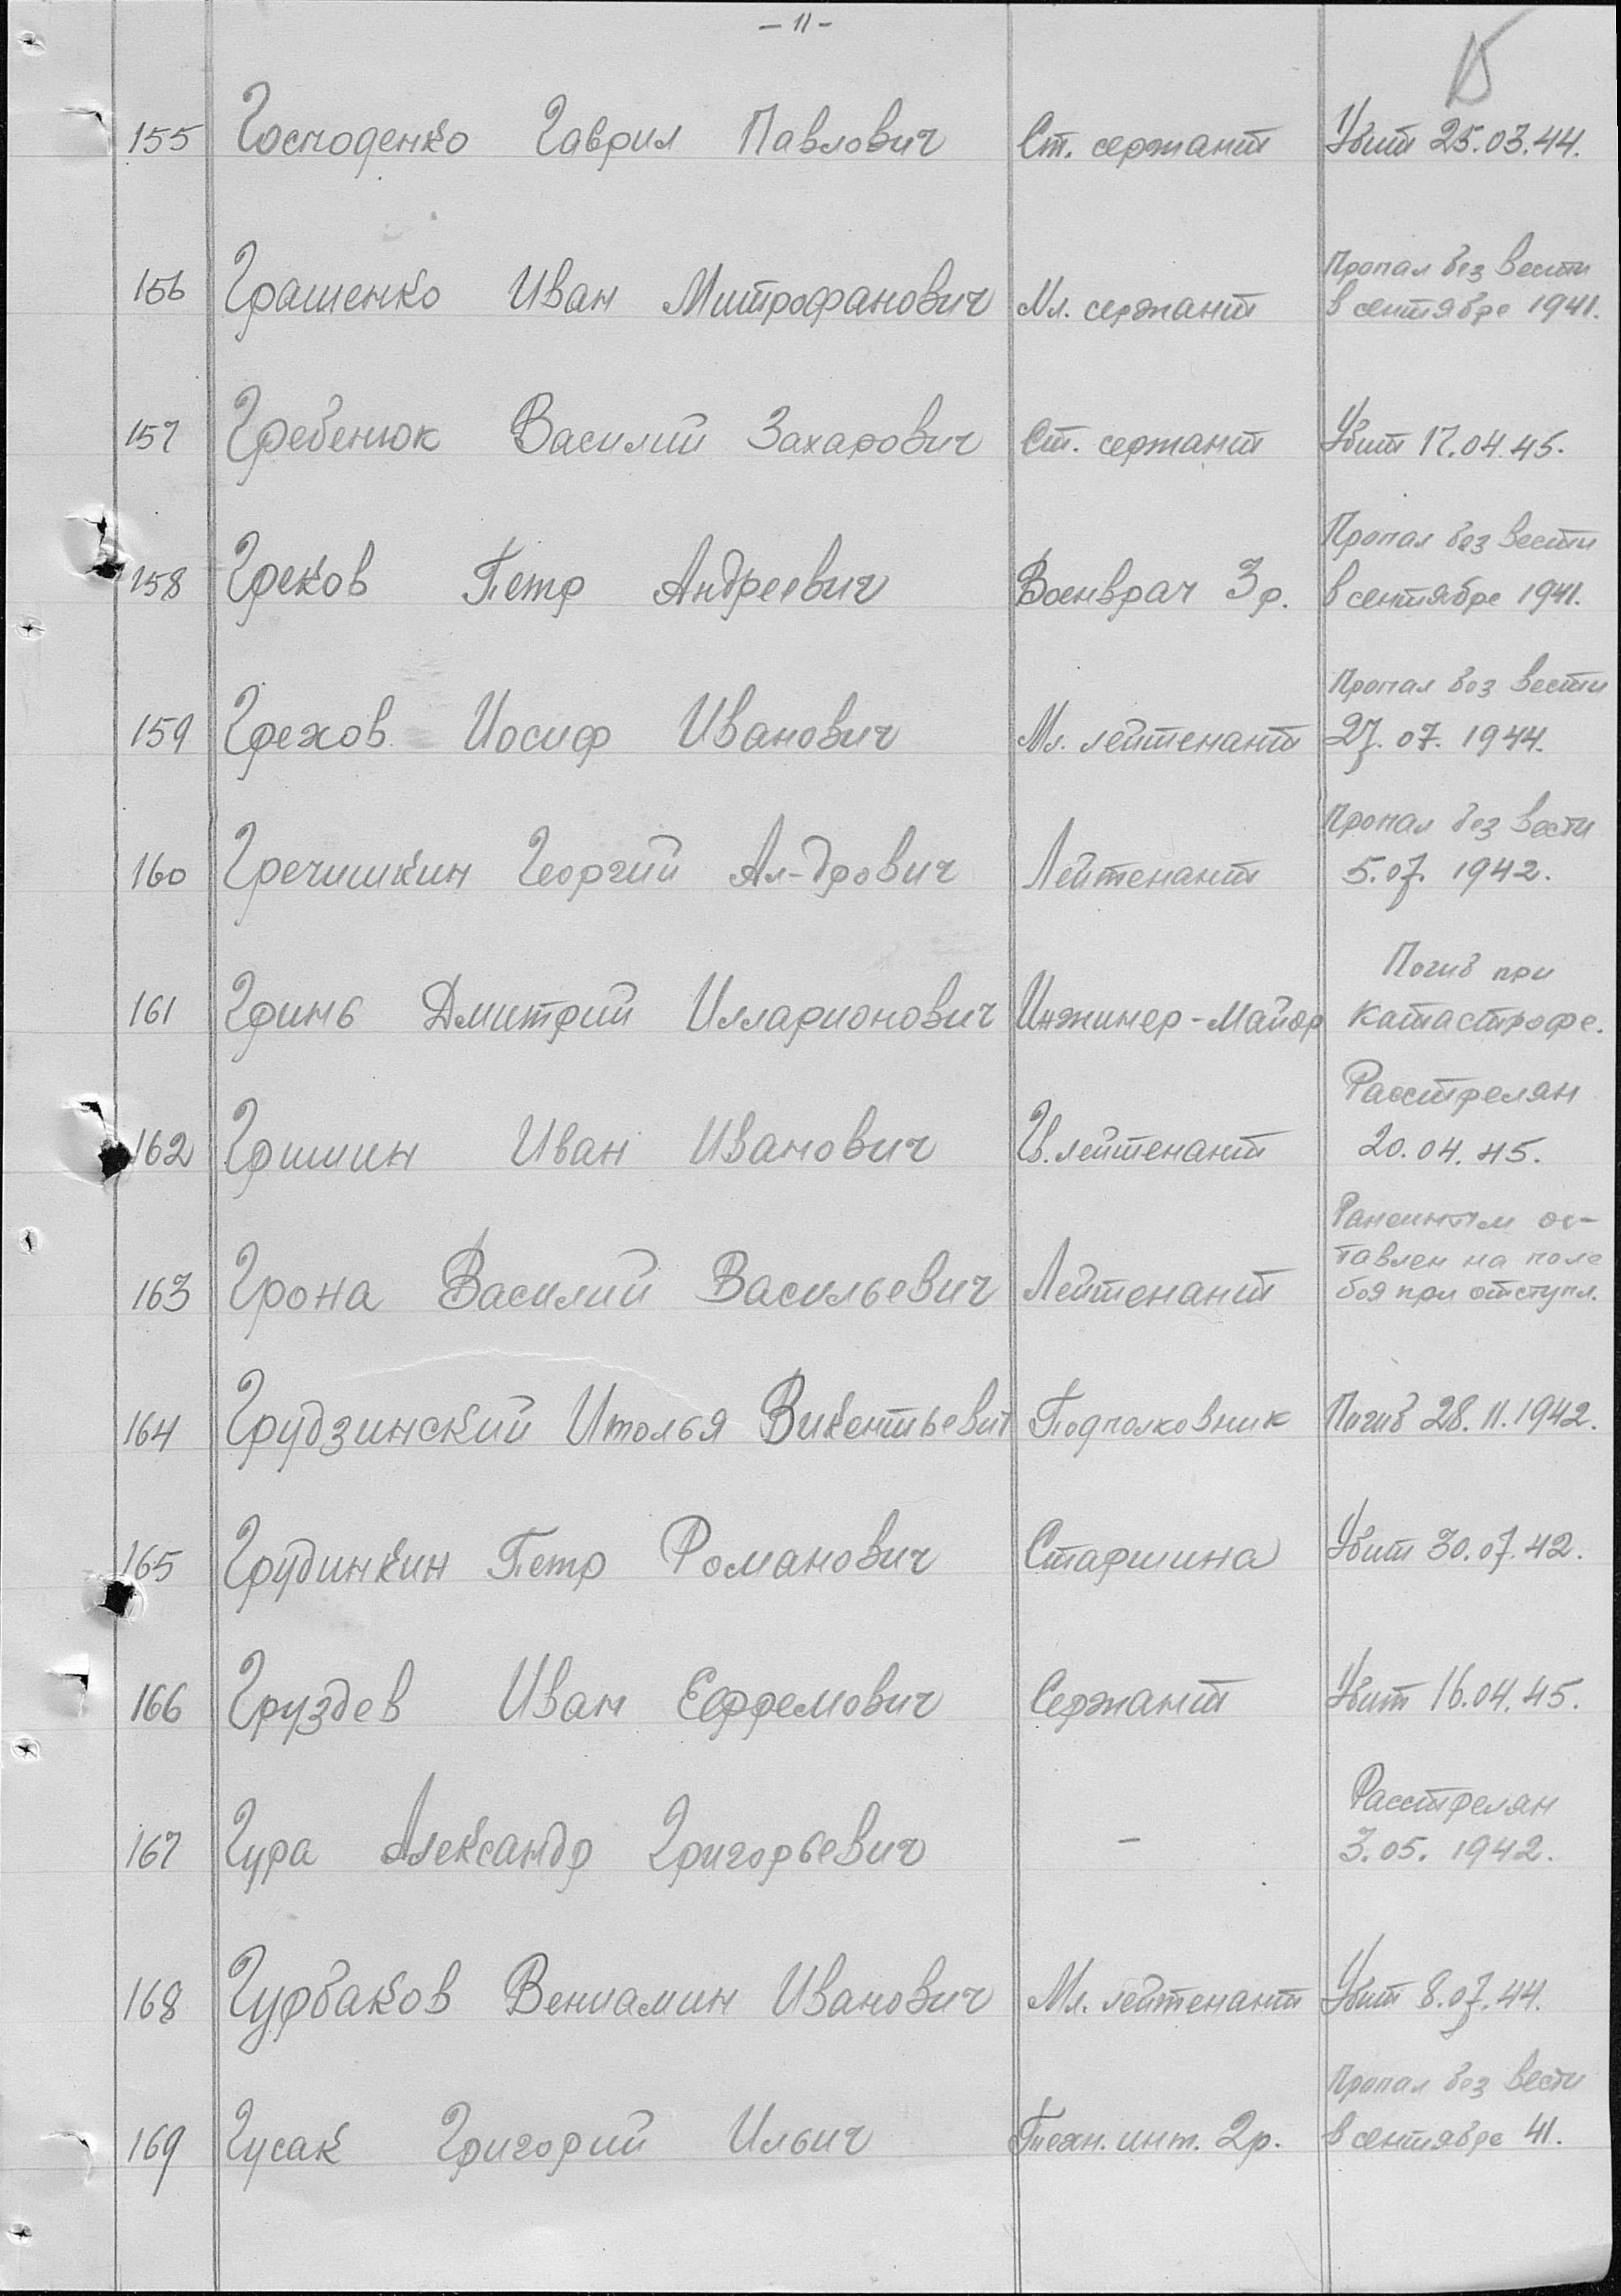 - 11 -
155 Господенко Гаврил Павлович Ст. сержант Убит 25.03.44.
Пропал без вести
156 Гращенко Иван Митрофанович Мл. сержант в сентябре 1941.
157 Гребенюк Василий Захарович Ст. сержант Убит 17.04.45.
Пропал без вести
158 Греков Петр Андреевич Военврач 3 р. в сентябре 1941.
Пропал без вести
159 Грехов Иосиф Иванович Мл. лейтенант 27.07.1944.
Пропал без вести
160 Гречишкин Георгий Ал-дрович Лейтенант 5.07.1942.
Погиб при
161 Гринь Дмитрий Илларионович Инжинер-Майор катастрофе.
Расстрелян
162 Гришин Иван Иванович Гв. лейтенант 20.04.45.
Раненным ос-
тавлен на поле
163 Грона Василий Васильевич Лейтенант боя при отступл.
164 Грудзинский Итолья Викентьевич Подполковник Погиб 28.11.1942.
165 Грудинкин Петр Романович Старшина Убит 30.07.42.
166 Груздев Иван Еффремович Сержант Убит 16.04.45.
Расстрелян
167 Гура Александр Григорьевич - 3.05.1942.
168 Гурбаков Вениамин Иванович Мл. лейтенант Убит 8.07.44.
Пропал без вести
169 Гусак Григорий Ильич Техн. инт. 2 р. в сентябре 41.